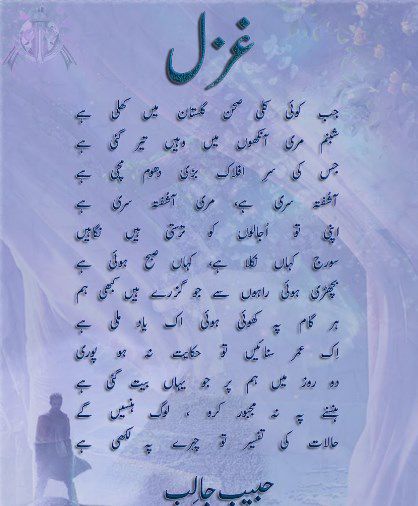 غزل
جب کوئی کلی صحن گلستان میں کھلی ہے
شبنم مری آنکھوں میں وہیں تیر گئی ہے
جس کی سر افلاک بڑی دھوم مچی ہے
آشفتہ سری ہے، مری آشفتہ سری ہے
اپنی تو اُجالوں کو ترستی ہیں نگاہیں
سورج کہاں نکلا ہے، کہاں صبح ہوئی ہے
بچھڑی ہوئی راہوں سے جو گزرے ہیں کبھی ہم
ہر گام پہ کھوئی ہوئی اک یاد ملی ہے
اِک عمر سنائیں تو حکایت نہ ہو پوری
دو روز میں ہم پر جو یہاں بیت گئی ہے
ہنسنے پہ نہ مجبور کرو ، لوگ ہنسیں گے
حالات کی تفسیر تو چہرے پہ لکھی ہے
حبیب جالب